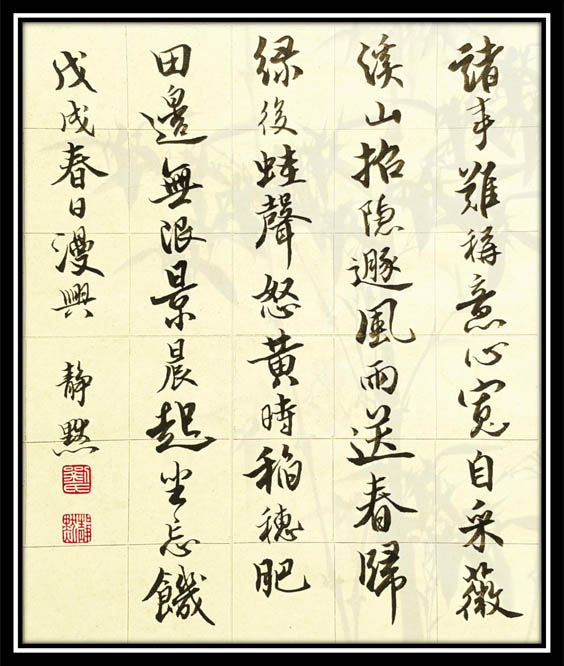 諸事難稱意心寬自采薇
溪山招隐遯風雨送春歸
绿後蛙聲怒黄時稻穗肥
田邊無限景晨起坐忘饑
戊戌春日漫興 静默